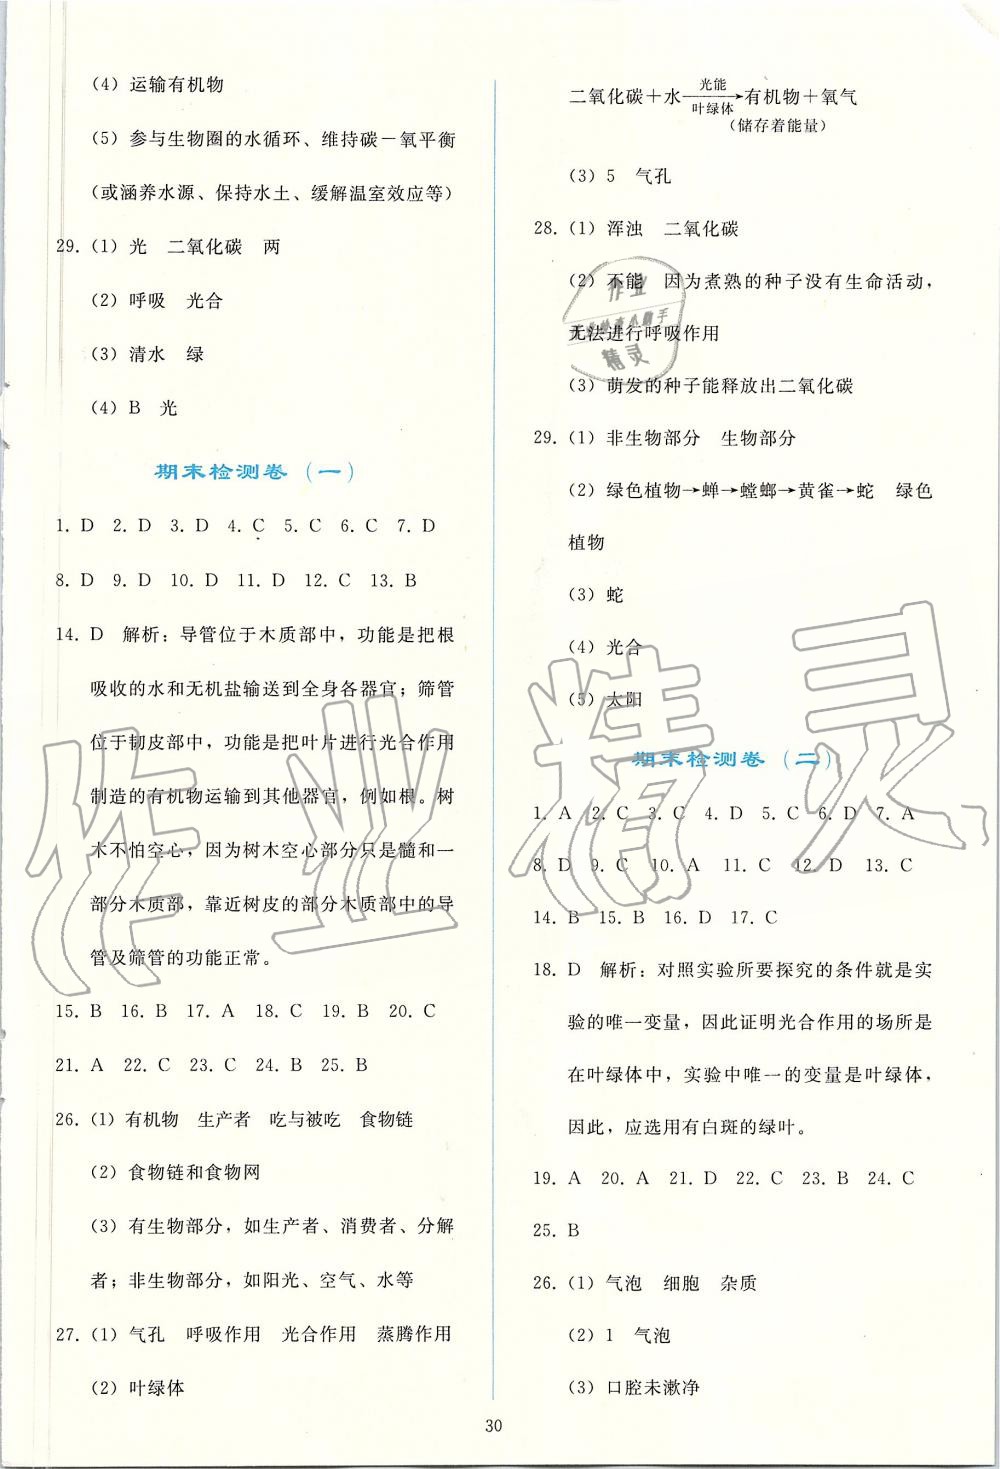 (4) 运输有机物
(5) 参与生物圈的水循环、维持碳－氧平衡
(或涵养水源、保持水土、缓解温室效应等)
29. (1) 光 二氧化碳 两
(2) 呼吸 光合
(3) 清水 绿
(4) B 光
期末检测卷(一)
1. D 2. D 3. D 4. C 5. C 6. C 7. D
8. D 9. D 10. D 11. D 12. C 13. B
14. D 解析：导管位于木质部中，功能是把根
吸收的水和无机盐输送到全身各器官；筛管
位于韧皮部中，功能是把叶片进行光合作用
制造的有机物运输到其他器官，例如根。树
木不怕空心，因为树木空心部分只是髓和一
部分木质部，靠近树皮的部分木质部中的导
管及筛管的功能正常。
15. B 16. B 17. A 18. C 19. B 20. C
21. A 22. C 23. C 24. B 25. B
26. (1) 有机物 生产者 吃与被吃 食物链
(2) 食物链和食物网
(3) 有生物部分，如生产者、消费者、分解
者；非生物部分，如阳光、空气、水等
27. (1) 气孔 呼吸作用 光合作用 蒸腾作用
(2) 叶绿体
光能
二氧化碳＋水→有机物＋氧气
叶绿体 (储存着能量)
(3) 5 气孔
28. (1) 浑浊 二氧化碳
(2) 不能 因为煮熟的种子没有生命活动，
无法进行呼吸作用
(3) 萌发的种子能释放出二氧化碳
29. (1) 非生物部分 生物部分
(2) 绿色植物→蝉→螳螂→黄雀→蛇 绿色
植物
(3) 蛇
(4) 光合
(5) 太阳
期末检测卷(二)
1. A 2. C 3. C 4. D 5. C 6. D 7. A
8. D 9. C 10. A 11. C 12. D 13. C
14. B 15. B 16. D 17. C
18. D 解析：对照实验所要探究的条件就是实
验的唯一变量，因此证明光合作用的场所是
在叶绿体中，实验中唯一的变量是叶绿体，
因此，应选用有白斑的绿叶。
19. A 20. A 21. D 22. C 23. B 24. C
25. B
26. (1) 气泡 细胞 杂质
(2) 1 气泡
(3) 口腔未漱净
30
作业
精灵
作业精灵